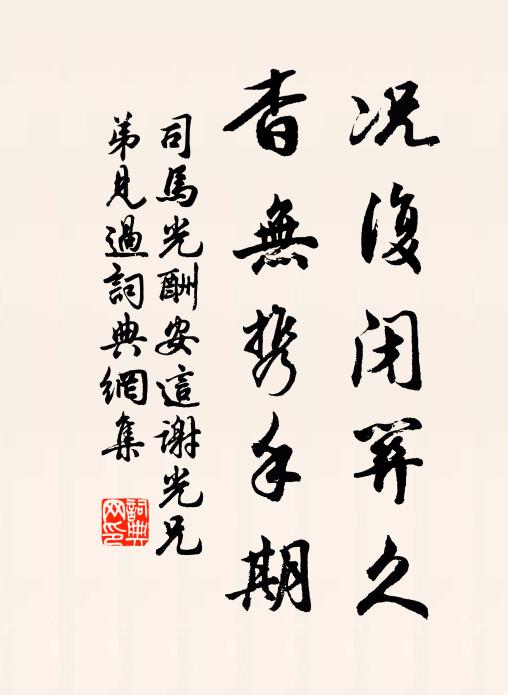 况復闭笄久
杳無携手期
司馬光酬安這謝光兄
弟見過詞典網集
詞典网印